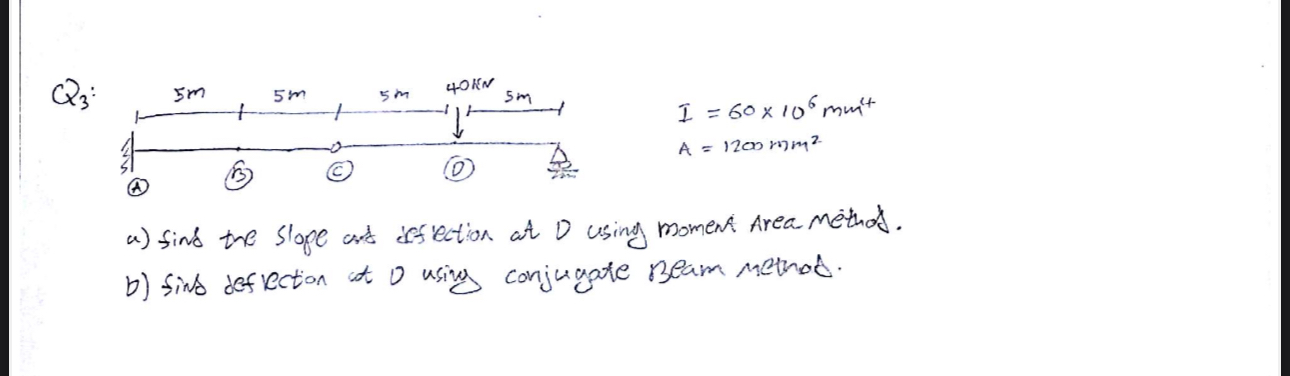 Q3:
5m 5m 5m 40KN 5m
I = 60 x 10⁶ mm⁴
A = 1200 mm²
A B C D
a) find the slope and deflection at D using moment Area method.
b) find deflection at D using conjugate Beam method.